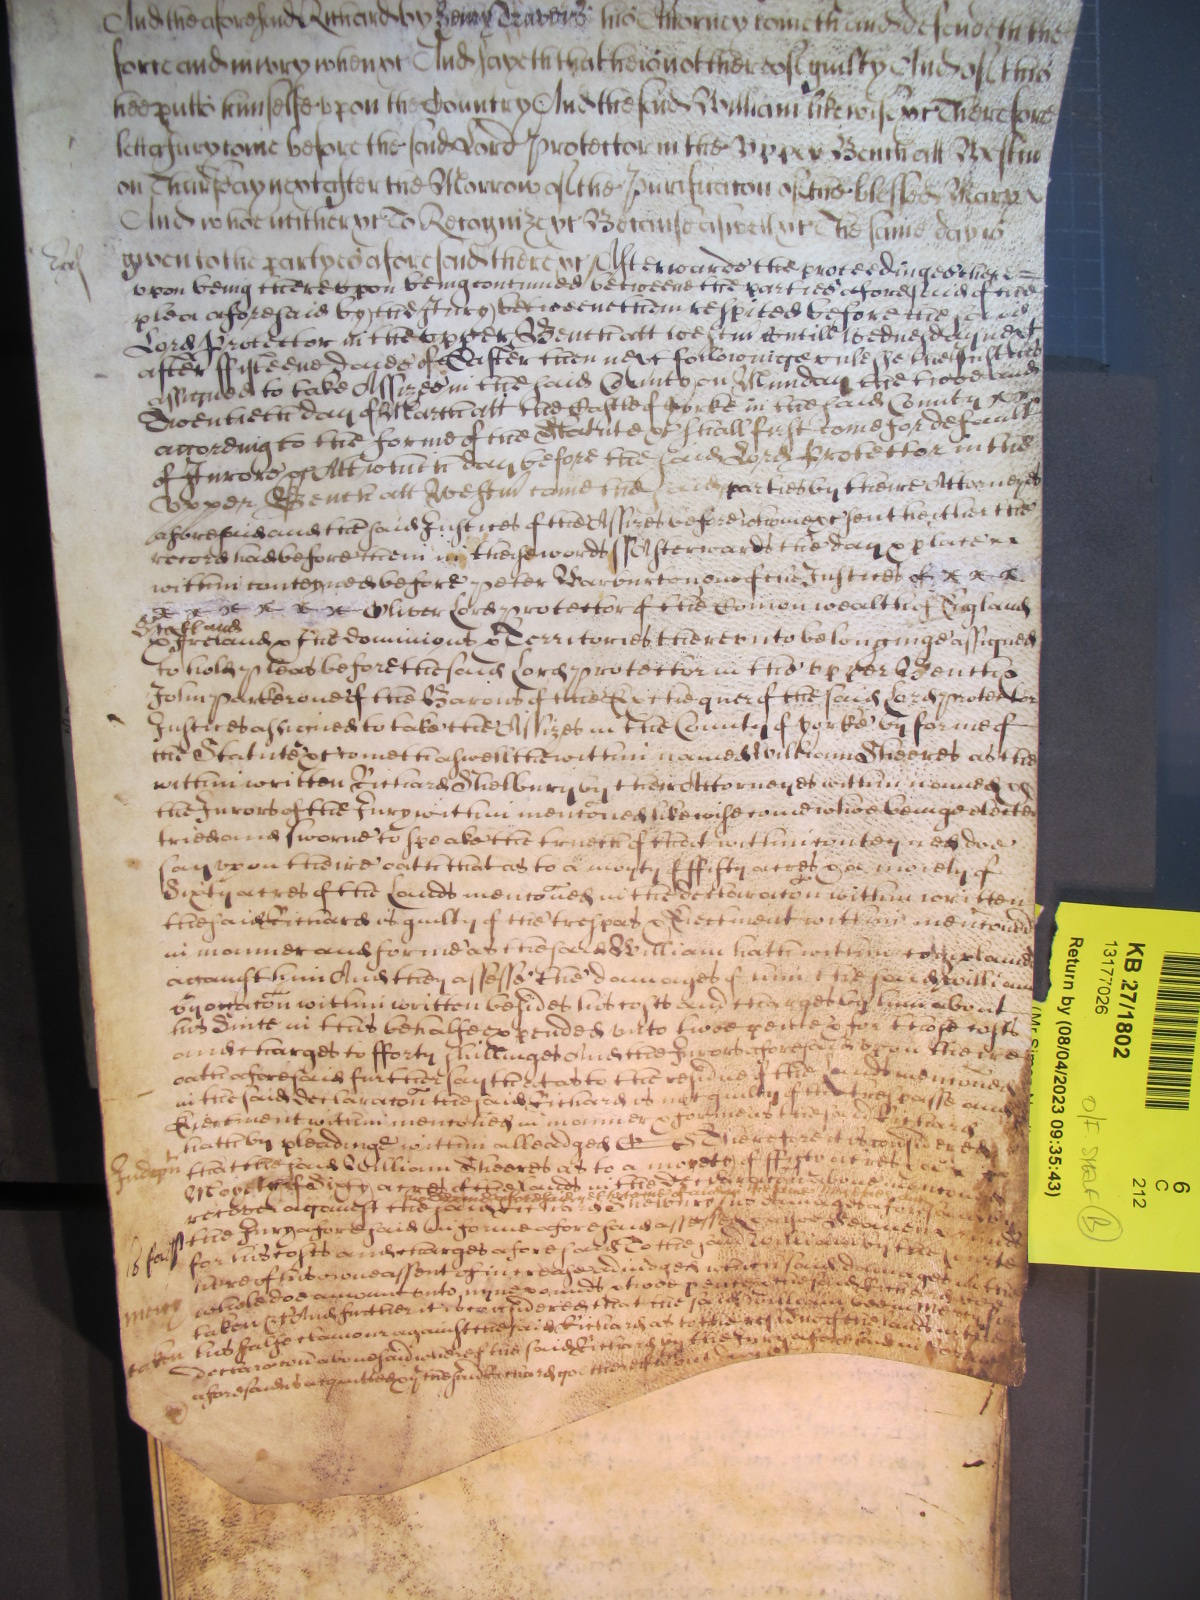 And the aforesaid Richard by Henry Travers his Attorney cometh and defendeth the
force and iniury when &c And sayeth that he is not thereof guilty And of this
hee putts himselfe vpon the Country And the said William likewise &c Therefore
lett a Jury come before the said Lord Protector in the Vpper Bench att Westm
on Thursday next after the Morrow of the Purificacon of the blessed Mary
And who neither &c To Recognize &c Because aswell &c The same day is
given to the partyes aforesaid there &c Afterwards the proceedinges there
vpon being therevpon being continued betweene the parties aforesaid of the
plea aforesaid by the Jury betweene them respited before the said
Lord Protector in the vpper Bench att Westm vntill Wednesday next
after ffifteene dayes of Easter then next followinge vnles the Justices
assigned to take Assizes in the said County on Munday the two and
Twentieth day of March att the Castle of Yorke in the said County
according to the forme of the Statute &c shall first come for default
of Jurors &c Att which day before the said Lord Protector in the
Vpper Bench att Westm came the said parties by their Attorneyes
aforesaid and the said Justices of the Assizes before whome &c sent hither the
record had before them in these words ss Afterwards the day & place
within conteyned before Peter Warburton one of the Justices of
Oliver Lord Protector of the Comon wealth of England
Scotland
& Ireland & the dominions & Territories therevnto belonginge assigned
to hold pleas before the said Lord Protector in the vpper Bench &
John Parker one of the Barons of the Exchequer of the said Lord Protector
Justices assigned to take the Assizes in the County of Yorke by forme of
the Statute &c cometh aswell the within named William Sheeres as the
within written Richard Shelbury by their Attorneyes within named &
the Jurors of the Jury within mentioned likewise come whoe beinge elected
tried and sworne to speake the trueth of that within conteyned doe
say vpon theire oath that as to a moyty of ffifty acres & a moiety of
Sixty acres of the Lands mentoned in the declaracon within written
the said Richard is guilty of the trespas & Eiectment within mentoned
in manner and forme as the said William hath within complained
against him And they assesse the damages of him the said William
by occacon within written besides his costs and charges by him about
his Suite in this behalfe expended vnto twoe pence & for those costs
and charges to fforty shillinges And the Jurors aforesaid vpon theire
oath aforesaid further say that as to the residue of the Lands mentoned
in the said declaracon the said Richard is not guilty of the trespasse and
Eiectment within mentoned in manner & forme as the said Richard
hath by pleadinge within alleadged Therefore it is considered
Judgm
that the said William Sheeres as to a moyety of ffifty acres & a
Moyety of Sixty acres of the Lands in the Declaracon above mentoned
recover against the said Richard his damages aforesaid by
the Jury aforesaid in forme aforesaid assessed
for his costs and charges aforesaid To the said William by the Court
here of his owne assent of increase adiudged which said damages in the
whole doe amount vnto nyne pounds & twoe pence
mercy
taken &c And further it is considered that the said William bee in mercy
his false clamour against the said Richard as to the residue of the lands in the
taken
declaracon abovesaid whereof the said Richard by the Jury aforesaid in forme
aforesaid is acquitted & the said Richard goe thereof without day
KB 27/1802
13177026
Return by (08/04/2023 09:35:43)
6
C
212
O/F SHELF
B